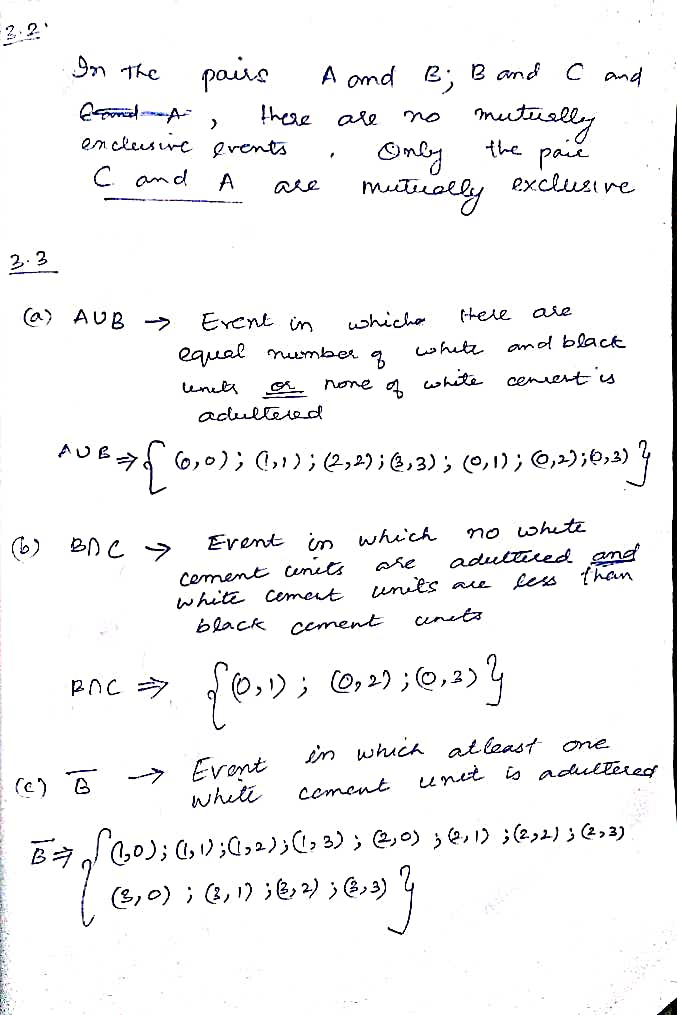 2.2'
In the pairs A and B; B and C and
C and A , there are no mutually
exclusive events . Only the pair
C and A are mutually exclusive
2.3
(a) AUB → Event in which there are
equal number of white and black
units or none of white cement is
adultered
AUB ⇒ { (0,0); (1,1); (2,2); (3,3); (0,1); (0,2); (0,3) }
(b) B∩C → Event in which no white
cement units are adultered and
white cement units are less than
black cement units
B∩C ⇒ { (0,1); (0,2); (0,3) }
(c) B̅ → Event in which atleast one
white cement unit is adultered
B̅ ⇒ { (1,0); (1,1); (1,2); (1,3); (2,0); (2,1); (2,2); (2,3)
(3,0); (3,1); (3,2); (3,3) }